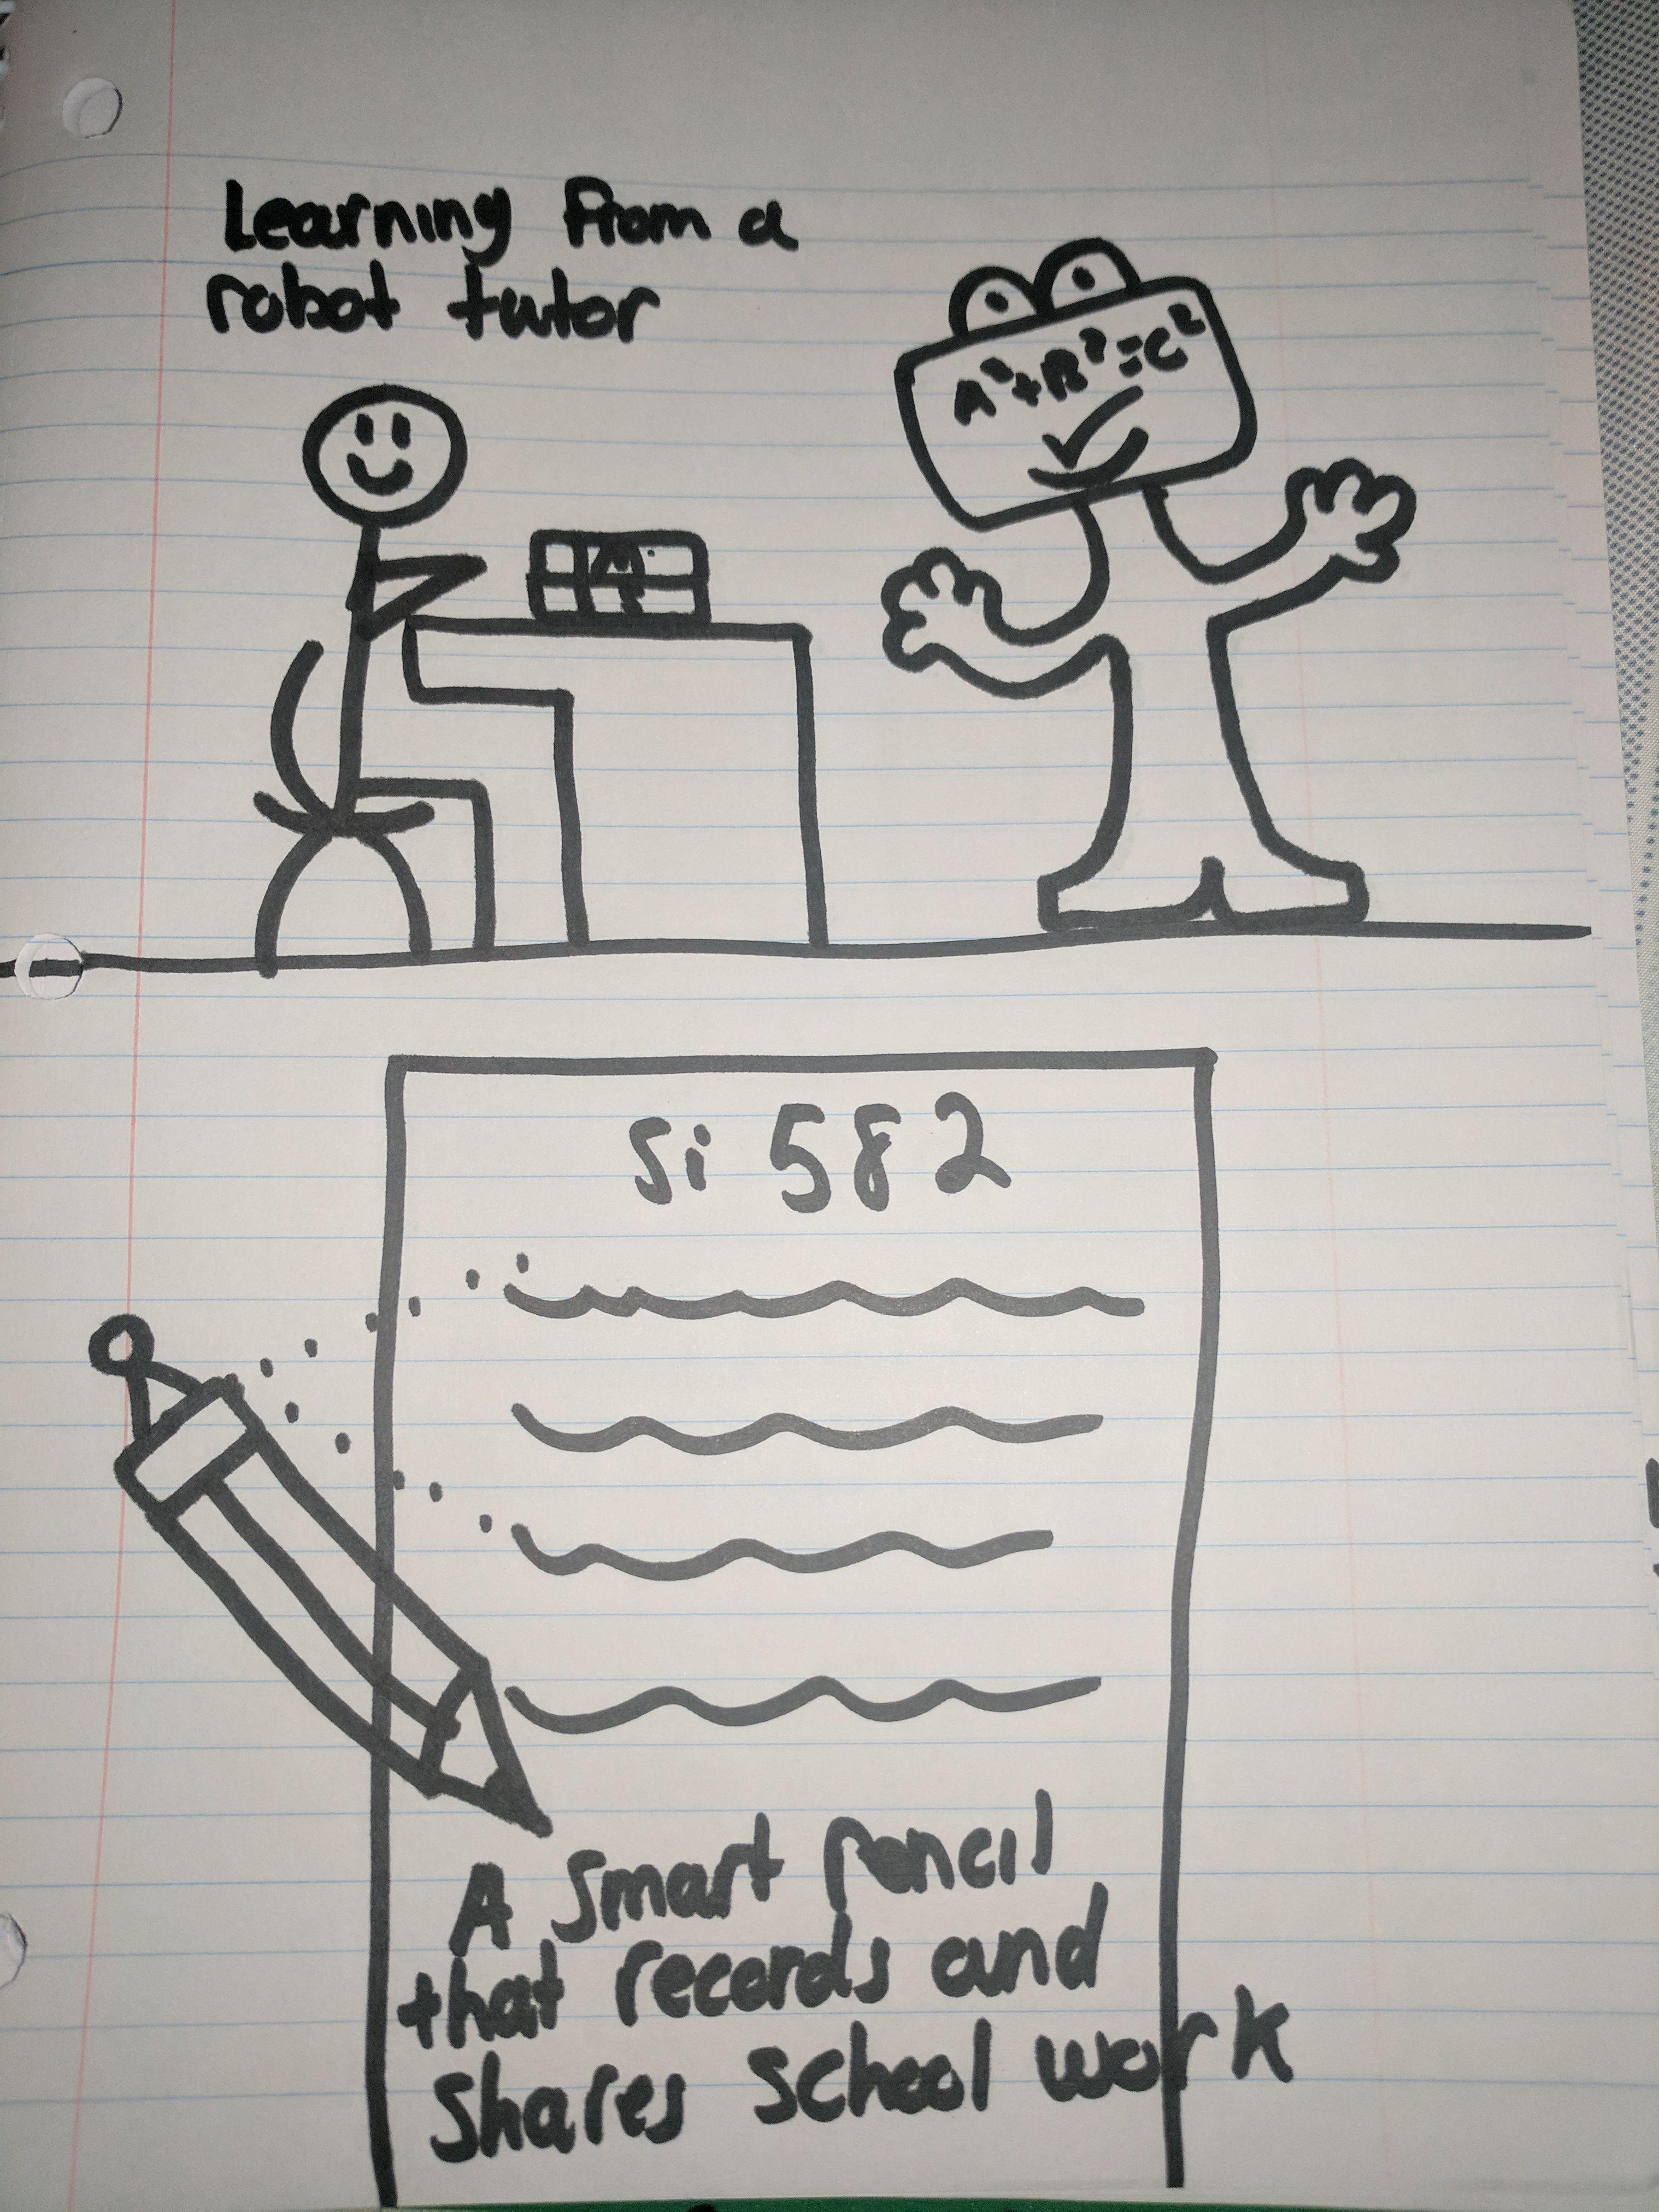 Learning from a
robot tutor
A²+B²=C²
Si 582
A smart pencil
that records and
shares school work